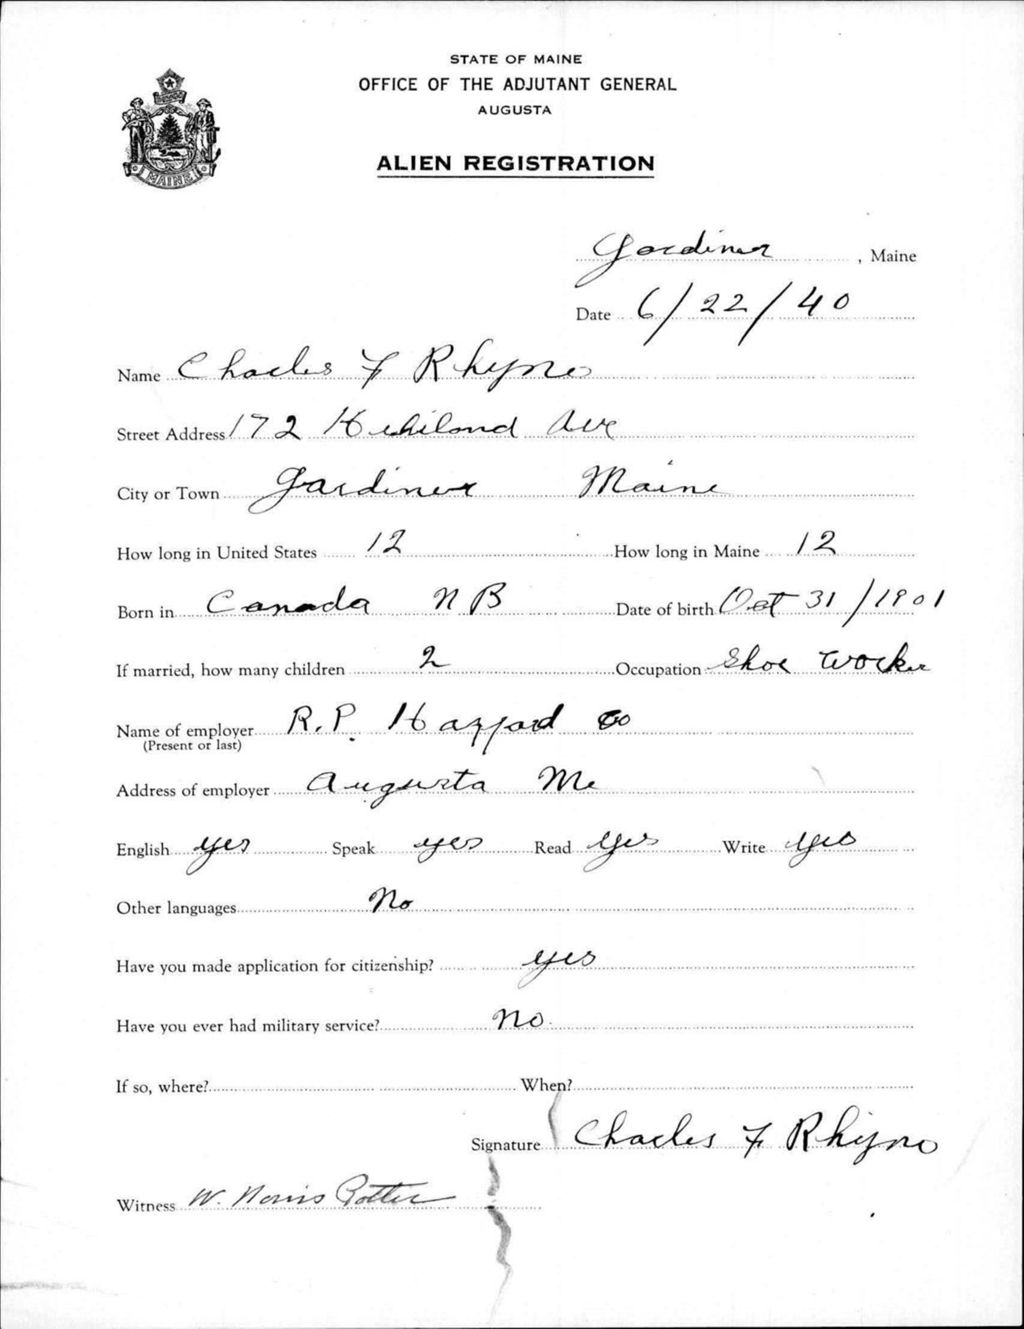 STATE OF MAINE
OFFICE OF THE ADJUTANT GENERAL
AUGUSTA
ALIEN REGISTRATION
MAINE
Gardiner, Maine
Date 6/22/40
Name Charles F Rhyno
Street Address 172 Highland Ave
City or Town Gardiner Maine
How long in United States 12 How long in Maine 12
Born in Canada N B Date of birth Oct 31/1901
If married, how many children 2 Occupation Shoe Worker
Name of employer R.P. Hazzard Co
(Present or last)
Address of employer Augusta Me
English yes Speak yes Read yes Write yes
Other languages No
Have you made application for citizenship? yes
Have you ever had military service? No
If so, where? When?
Signature Charles F Rhyno
Witness W. Norris Potter